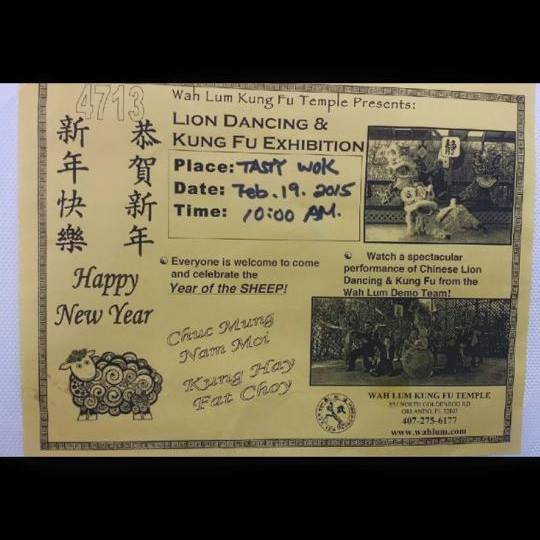 4713
新年快樂
恭賀新年
Happy
New Year
Wah Lum Kung Fu Temple Presents:
LION DANCING &
KUNG FU EXHIBITION
Place: TASTY WOK
Date: Feb. 19. 2015
Time: 10:00 AM.
Everyone is welcome to come
and celebrate the
Year of the SHEEP!
Watch a spectacular
performance of Chinese Lion
Dancing & Kung Fu from the
Wah Lum Demo Team!
Chuc Mung
Nam Moi
Kung Hay
Fat Choy
靜
WAH LUM KUNG FU TEMPLE
851 NORTH GOLDENROD RD
ORLANDO, FL 32807
407-275-6177
www.wahlum.com